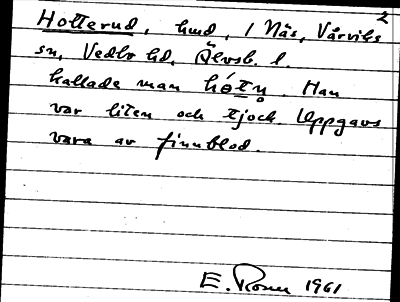 2
Hotterud, hmd, / Näs, Vårviks
sn, Vedbo hd, Älvsb. l.
kallade man hó̲tņ. Han
var liten och tjock. Uppgavs
vara av finnblod.
E. Rosell 1961